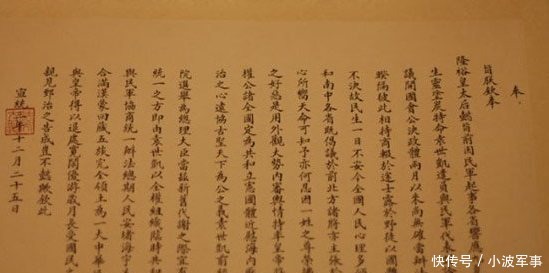 奉
旨朕欽奉
隆裕皇太后懿旨前因民軍起事各省響應
生靈塗炭特命袁世凱遣員與民軍代表
議開國會公決政體兩月以來尚無確當辦
睽隔彼此相持商輟於途士露於野徒以國
不決故民生一日不安今全國人民心理多
和南中各省既倡議於前北方諸將亦主張
心所嚮天命可知予亦何忍因一姓之尊榮
之好惡是用外觀大勢內審輿情特率皇帝
權公諸全國定為共和立憲國體近慰海內
治之心遠協古聖天下為公之義袁世凱前
院選舉為總理大臣當茲新舊代謝之際宜
統一之方即由袁世凱以全權組織臨時共
與民軍協商統一辦法總期人民安堵海宇
合滿漢蒙回藏五族完全領土為一大中華
與皇帝得以退處寬閒優游歲月長受國民
親見郅治之告成豈不懿歟欽此
宣統三年十二月二十五日
快传号 / 小波军事